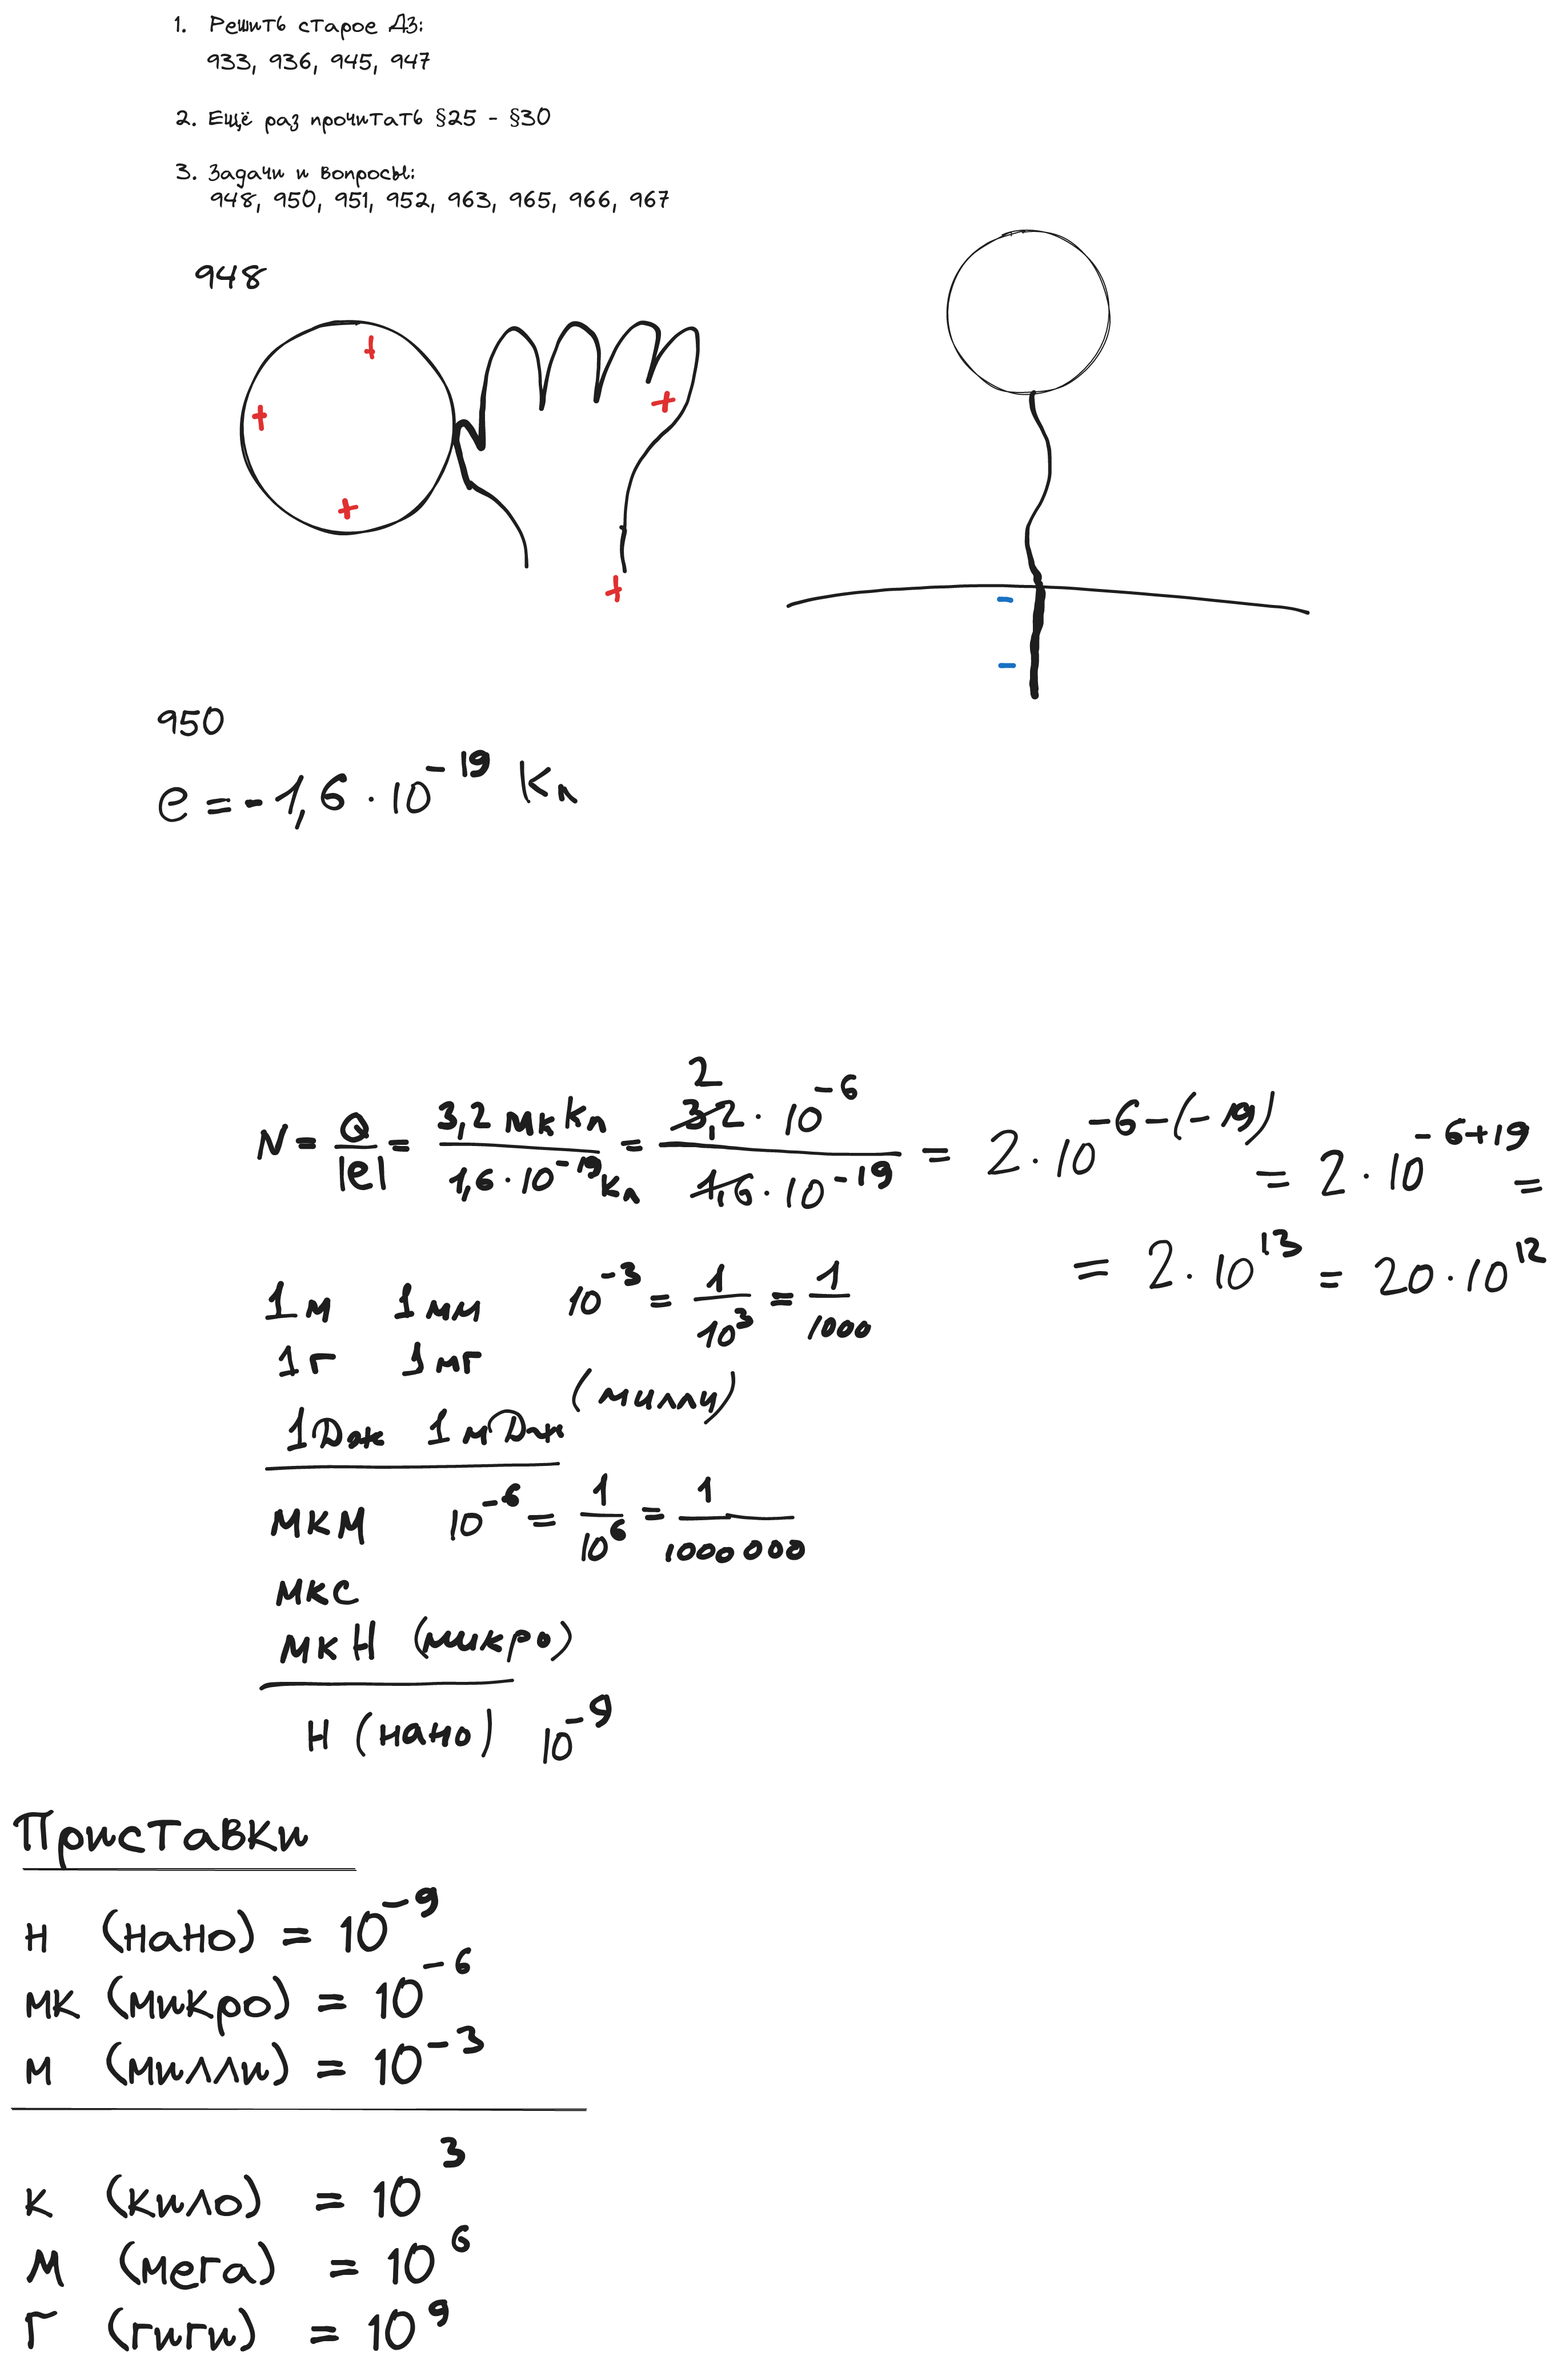 1. Решить старое ДЗ:
933, 936, 945, 947
2. Ещё раз прочитать §25 - §30
3. Задачи и вопросы:
948, 950, 951, 952, 963, 965, 966, 967
948
+
+
+
+
+
-
-
950
e = -1,6 · 10^-19 Кл
N = Q/|e| = 3,2 мкКл / 1,6 · 10^-19 Кл = 3,2 · 10^-6 / 1,6 · 10^-19 = 2 · 10^-6-(-19) = 2 · 10^-6+19 =
2
= 2 · 10^13 = 20 · 10^12
1 м 1 мм 10^-3 = 1/10^3 = 1/1000
1 г 1 мг
(милли)
1 Дж 1 мДж
мкм 10^-6 = 1/10^6 = 1/1000 000
мкс
мкН (микро)
н (нано) 10^-9
Приставки
н (нано) = 10^-9
мк (микро) = 10^-6
м (милли) = 10^-3
к (кило) = 10^3
М (мега) = 10^6
Г (гиги) = 10^9